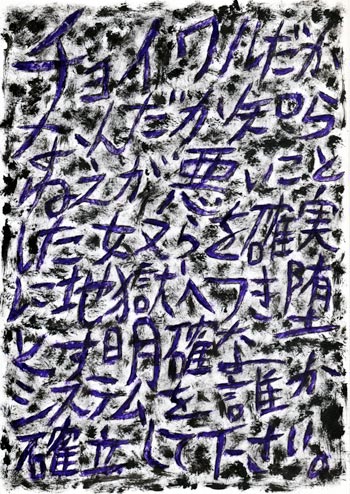 チョイワルだか
なんだか知ら
ねえが悪いこと
した奴らを確実
に地獄へつき堕
とす明確な誰か
システムを
確立して下さい。